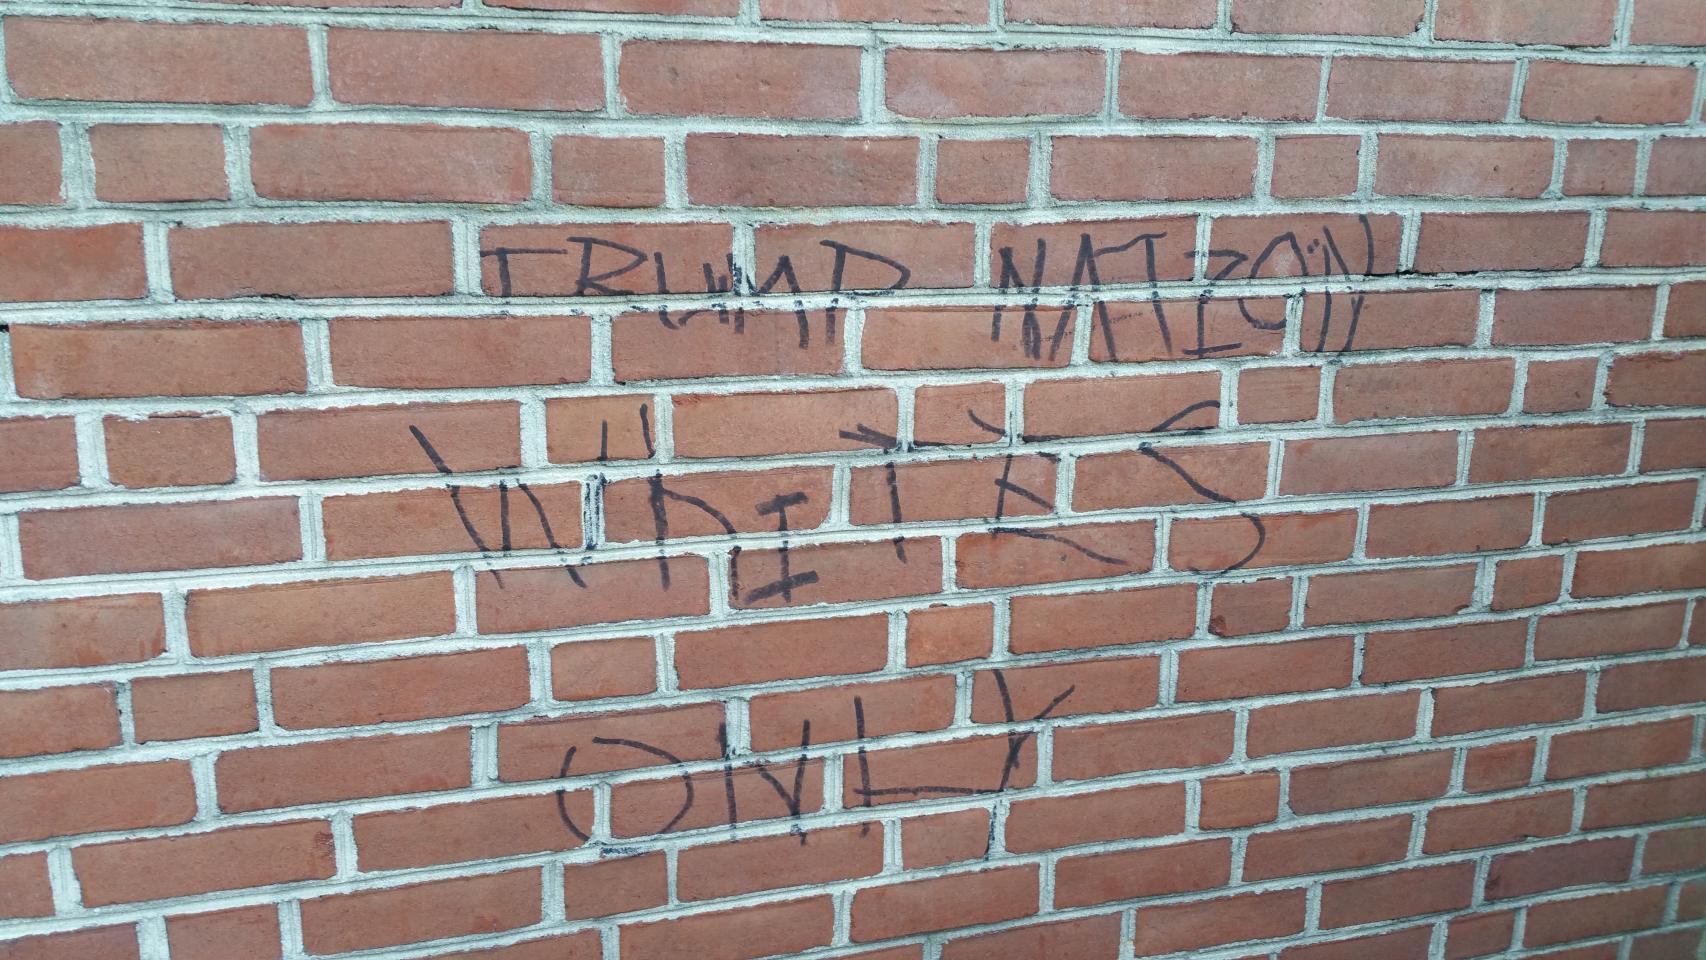 TRUMP NATION
WHITES
ONLY